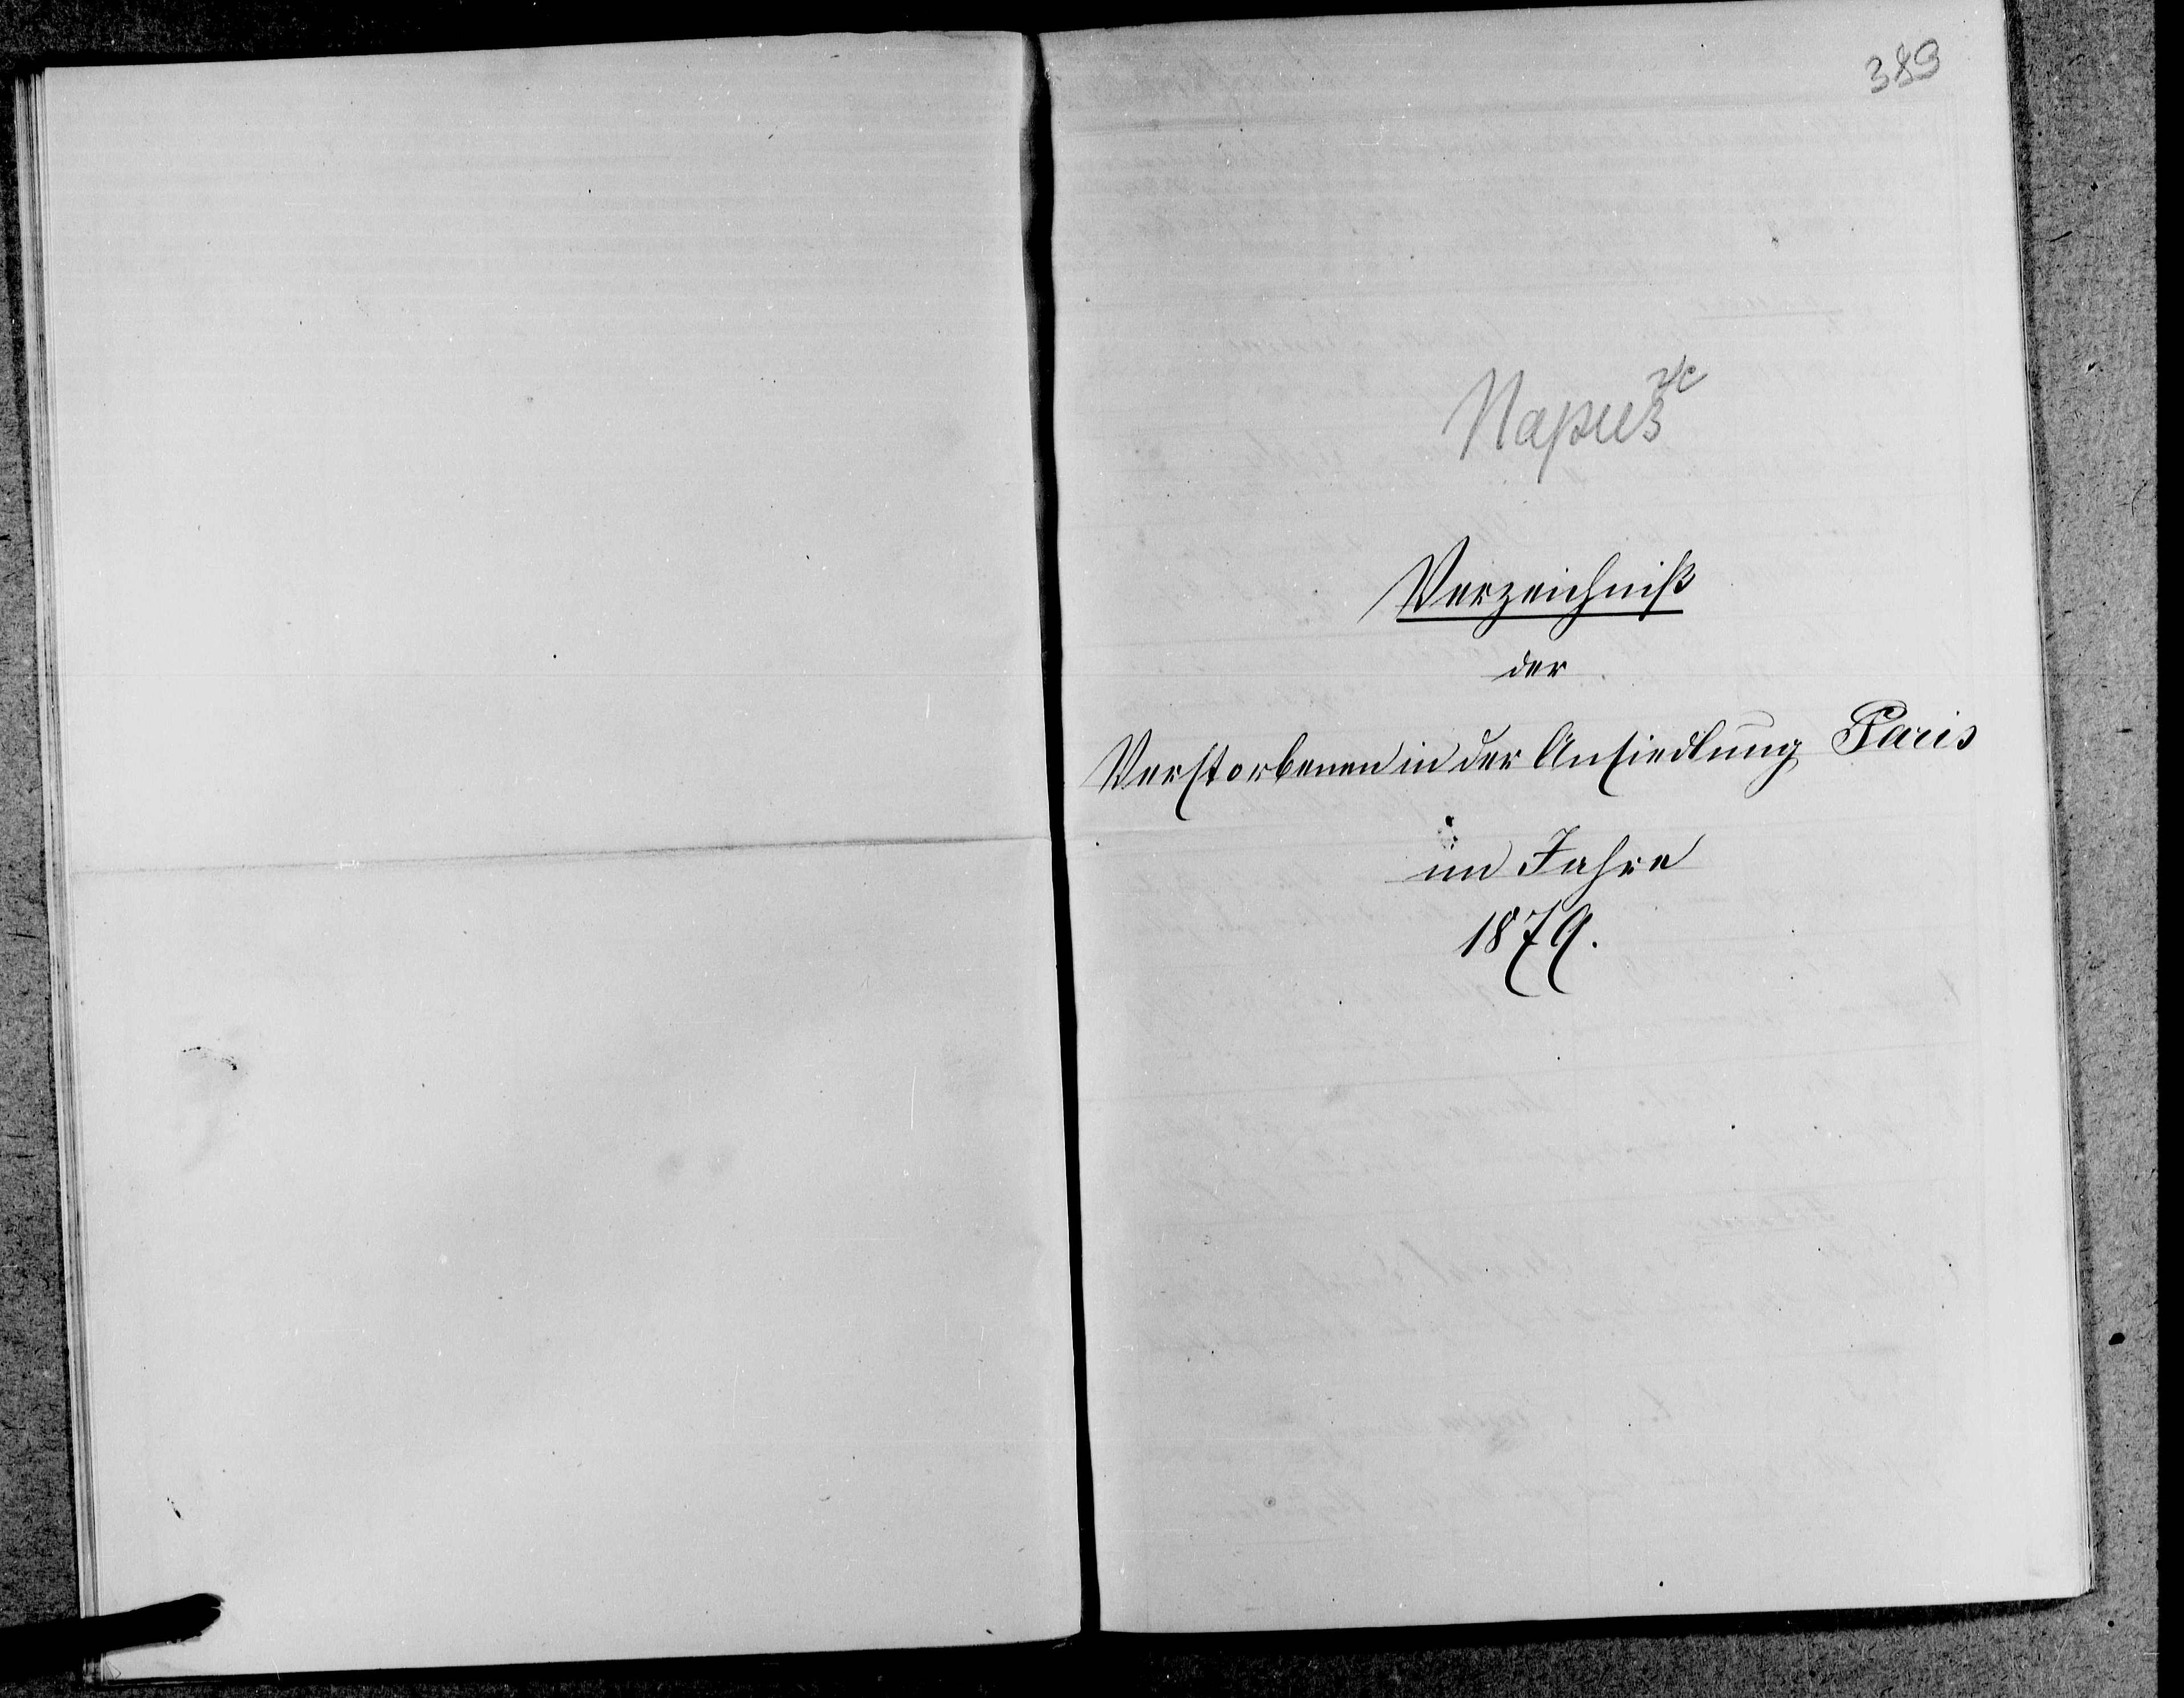 389
Париж
Verzeichniß
der
Verstorbenen in der Ansiedlung Paris
im Jahre
1879.